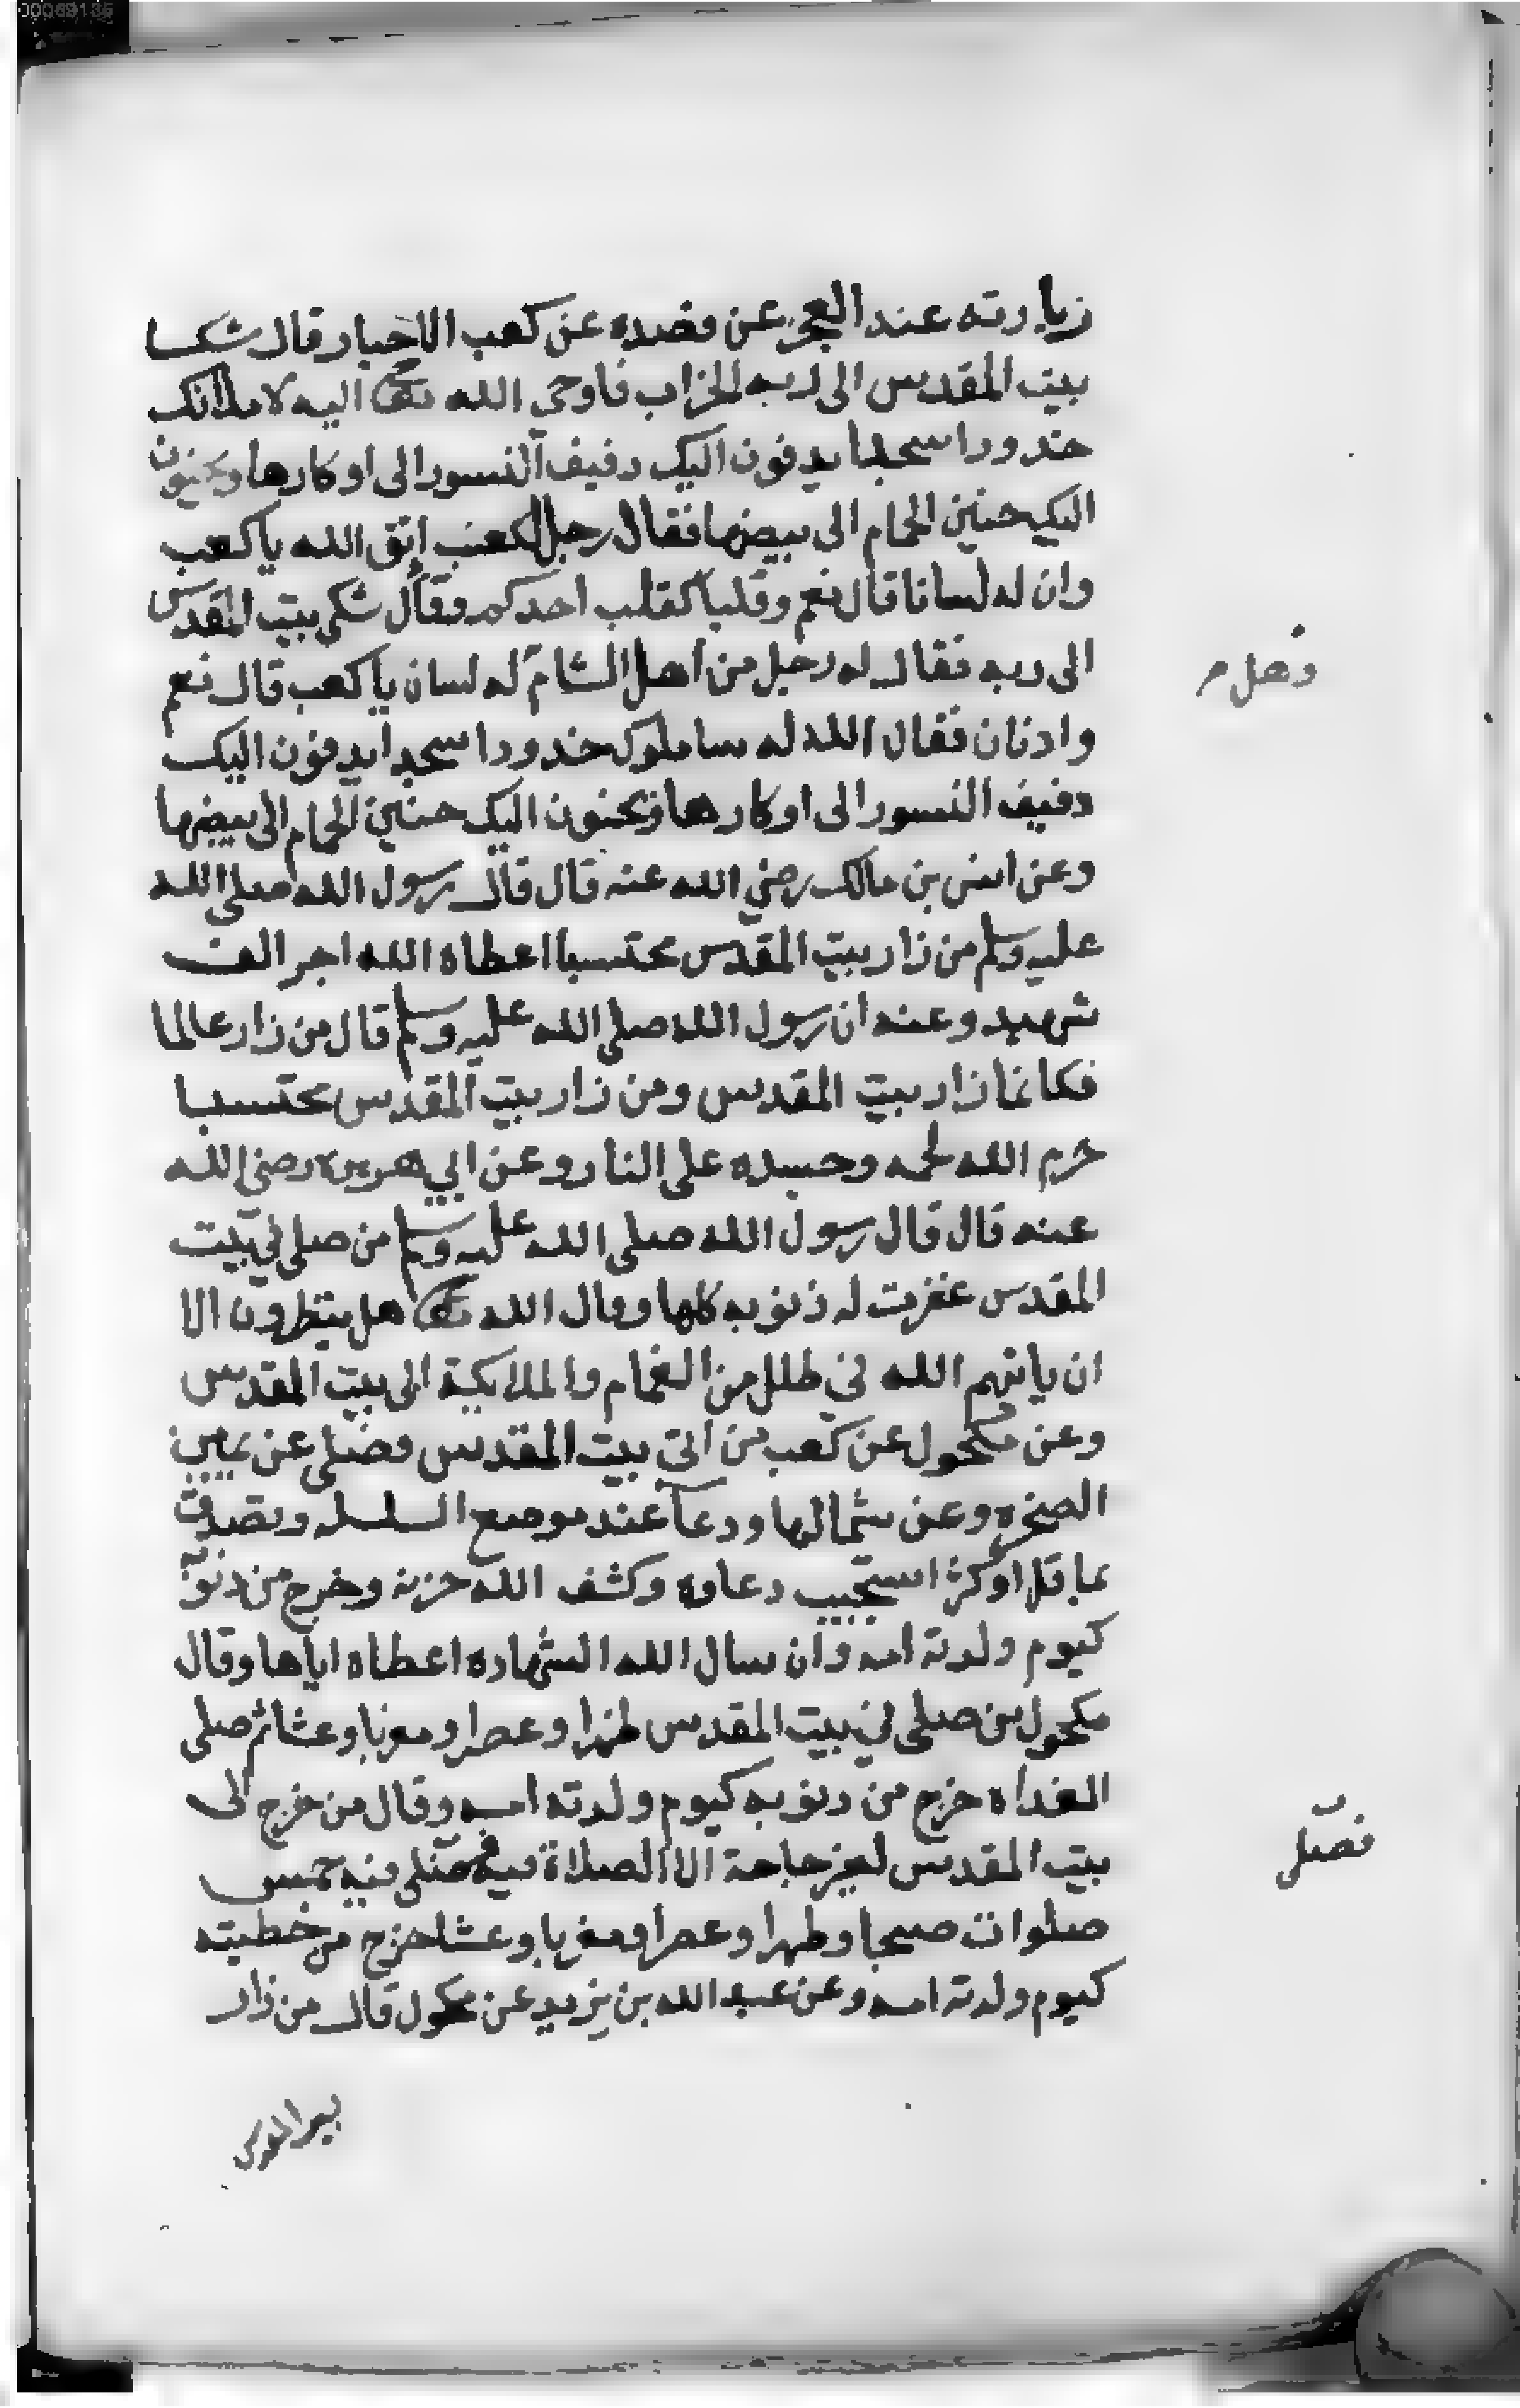 زيارته عند العجز عن قصده عن كعب الاحبار قال شكا
بيت المقدس الى ربه الخراب فاوحي الله تعالى اليه لاملانك
خدودا سجدا يدفون اليك دفيف النسور الى اوكارها ويحنون
اليك حنين الحمام الى بيضها فقال رجل لكعب اتق الله يا كعب
وان له لسانا قال نعم وقلبا كقلب احدكم وقال شكى بيت المقدس
الى ربه فقال له رجل من اهل الشام له لسان يا كعب قال نعم
واذنان فقال الله له ساملوك خدودا سجدا يدفون اليك
دفيف النسور الى اوكارها ويحنون اليك حنين الحمام الى بيضها
وعن انس بن مالك رضي الله عنه قال قال رسول الله صلى الله
عليه وسلم من زار بيت المقدس محتسبا اعطاه الله اجر الف
شهيد وعنه ان رسول الله صلى الله عليه وسلم قال من زار عالما
فكانما زار بيت المقدس ومن زار بيت المقدس محتسبا
حرم الله لحمه وجسده على النار وعن ابي هريرة رضي الله
عنه قال قال رسول الله صلى الله عليه وسلم من صلى في بيت
المقدس غفرت له ذنوبه كلها وقال الله تعالى هل ينظرون الا
ان ياتيهم الله في ظلل من الغمام والملايكة الى بيت المقدس
وعن مكحول عن كعب من اتى بيت المقدس وصلى عن يمين
الصخره وعن شمالها ودعا عند موضع السلسله وتصدق
بما قل او كثر استجيب دعاوه وكشف الله حزنه وخرج من ذنوبه
كيوم ولدته امه وان سال الله الشهاده اعطاه اياها وقال
مكحول من صلى في بيت المقدس ظهرا وعصرا ومغربا وعشا ثم صلى
الغداة خرج من ذنوبه كيوم ولدته امه وقال من خرج الى
بيت المقدس لغير حاجة الا الصلاة فيه فصلى فيه خمس
صلوات صبحا وظهرا وعصرا ومغربا وعشا خرج من خطيته
كيوم ولدته امه وعن عبد الله بن يزيد عن مكحول قال من زار
فصلى